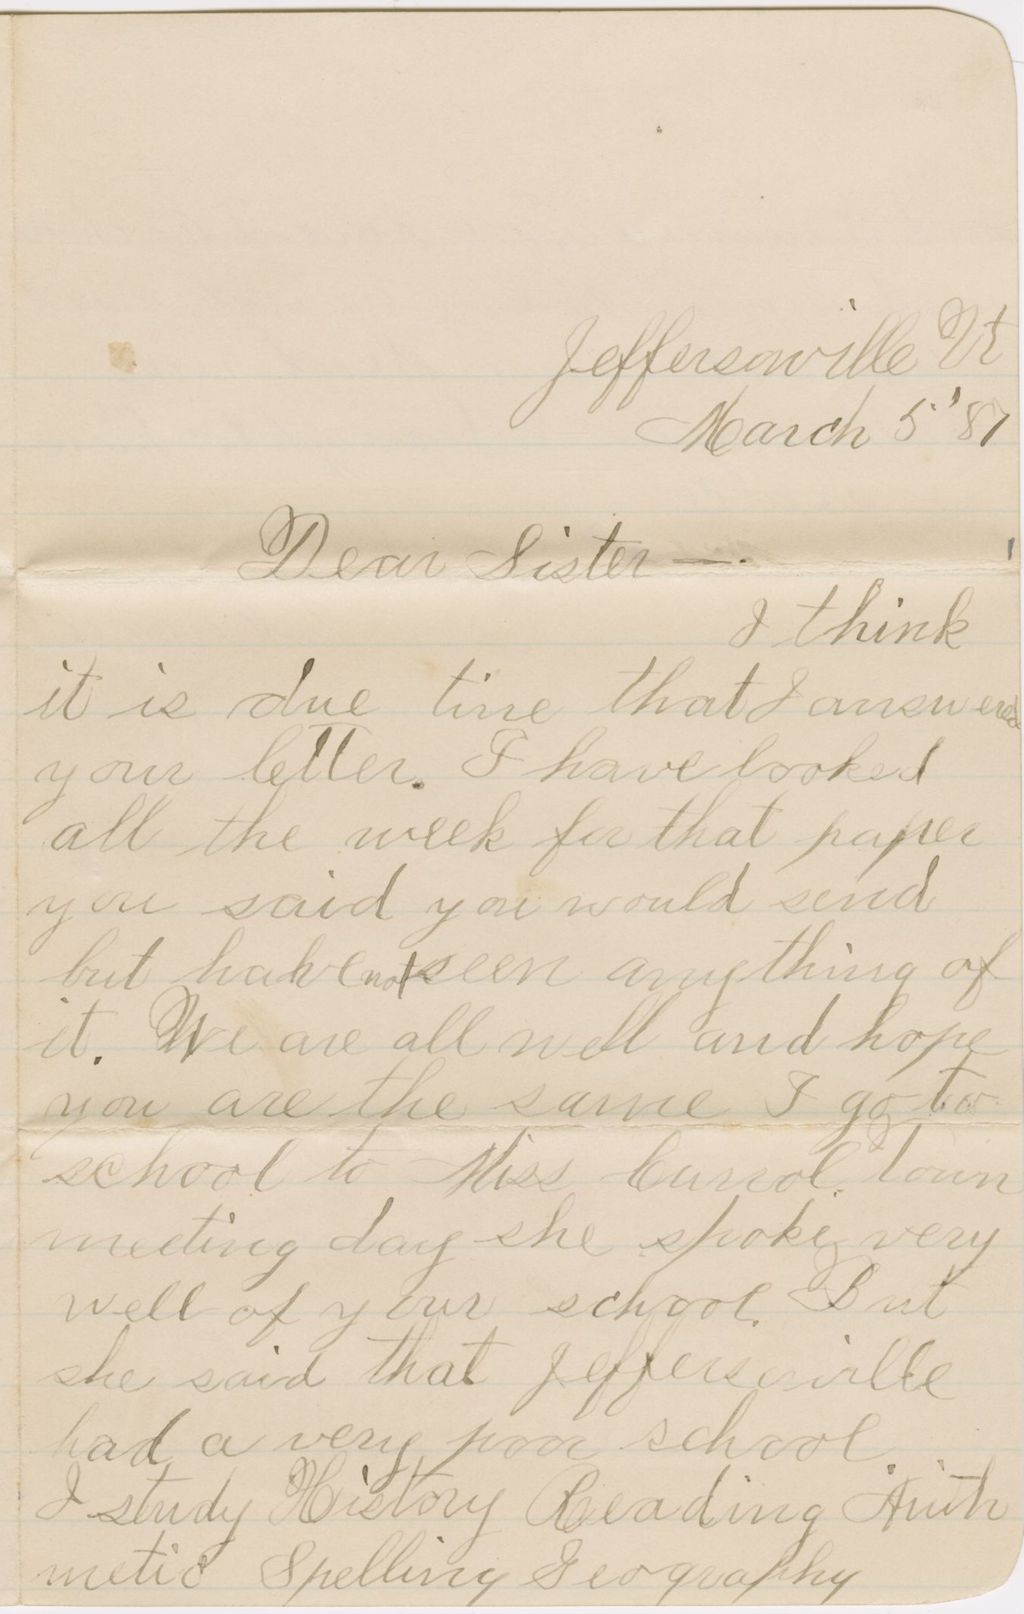 Jeffersonville Vt
March 5 '87
Dear Sister —.
I think
it is due time that I answered
your letter. I have looked
all the week for that paper
you said you would send
but have not seen anything of
it. We are all well and hope
you are the same I go to
school to Miss Carrol. town
meeting day she spoke very
well of your school. But
she said that Jeffersonville
had a very poor school.
I study History Reading Arith
metic Spelling Geography